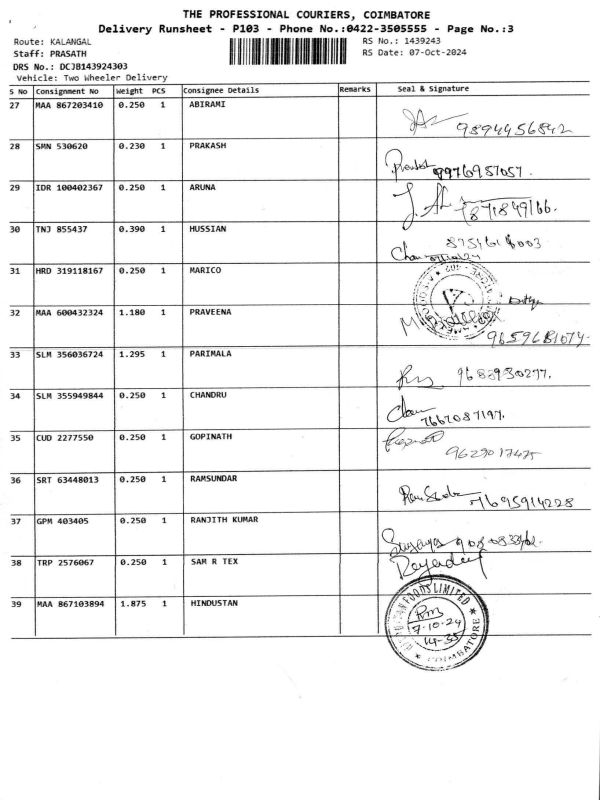 THE PROFESSIONAL COURIERS, COIMBATORE
Delivery Runsheet - P103 - Phone No.:0422-3505555 - Page No.:3
Route: KALANGAL
RS No.: 1439243
Staff: PRASATH
RS Date: 07-Oct-2024
DRS No.: DCJB143924303
Vehicle: Two Wheeler Delivery
S No Consignment No Weight PCS Consignee Details Remarks Seal & Signature
27 MAA 867203410 0.250 1 ABIRAMI
9894456842
28 SMN 530620 0.230 1 PRAKASH
9976957057.
29 IDR 100402367 0.250 1 ARUNA
30 TNJ 855437 0.390 1 HUSSIAN
31 HRD 319118167 0.250 1 MARICO
32 MAA 600432324 1.180 1 PRAVEENA
9659681074
33 SLM 356036724 1.295 1 PARIMALA
9688930277.
34 SLM 355949844 0.250 1 CHANDRU
7667087197.
35 CUD 2277550 0.250 1 GOPINATH
9629017475
36 SRT 63448013 0.250 1 RAMSUNDAR
7695914228
37 GPM 403405 0.250 1 RANJITH KUMAR
38 TRP 2576067 0.250 1 SAM R TEX
39 MAA 867103894 1.875 1 HINDUSTAN
FOODS LIMITED
7-10-24
14-35
COIMBATORE